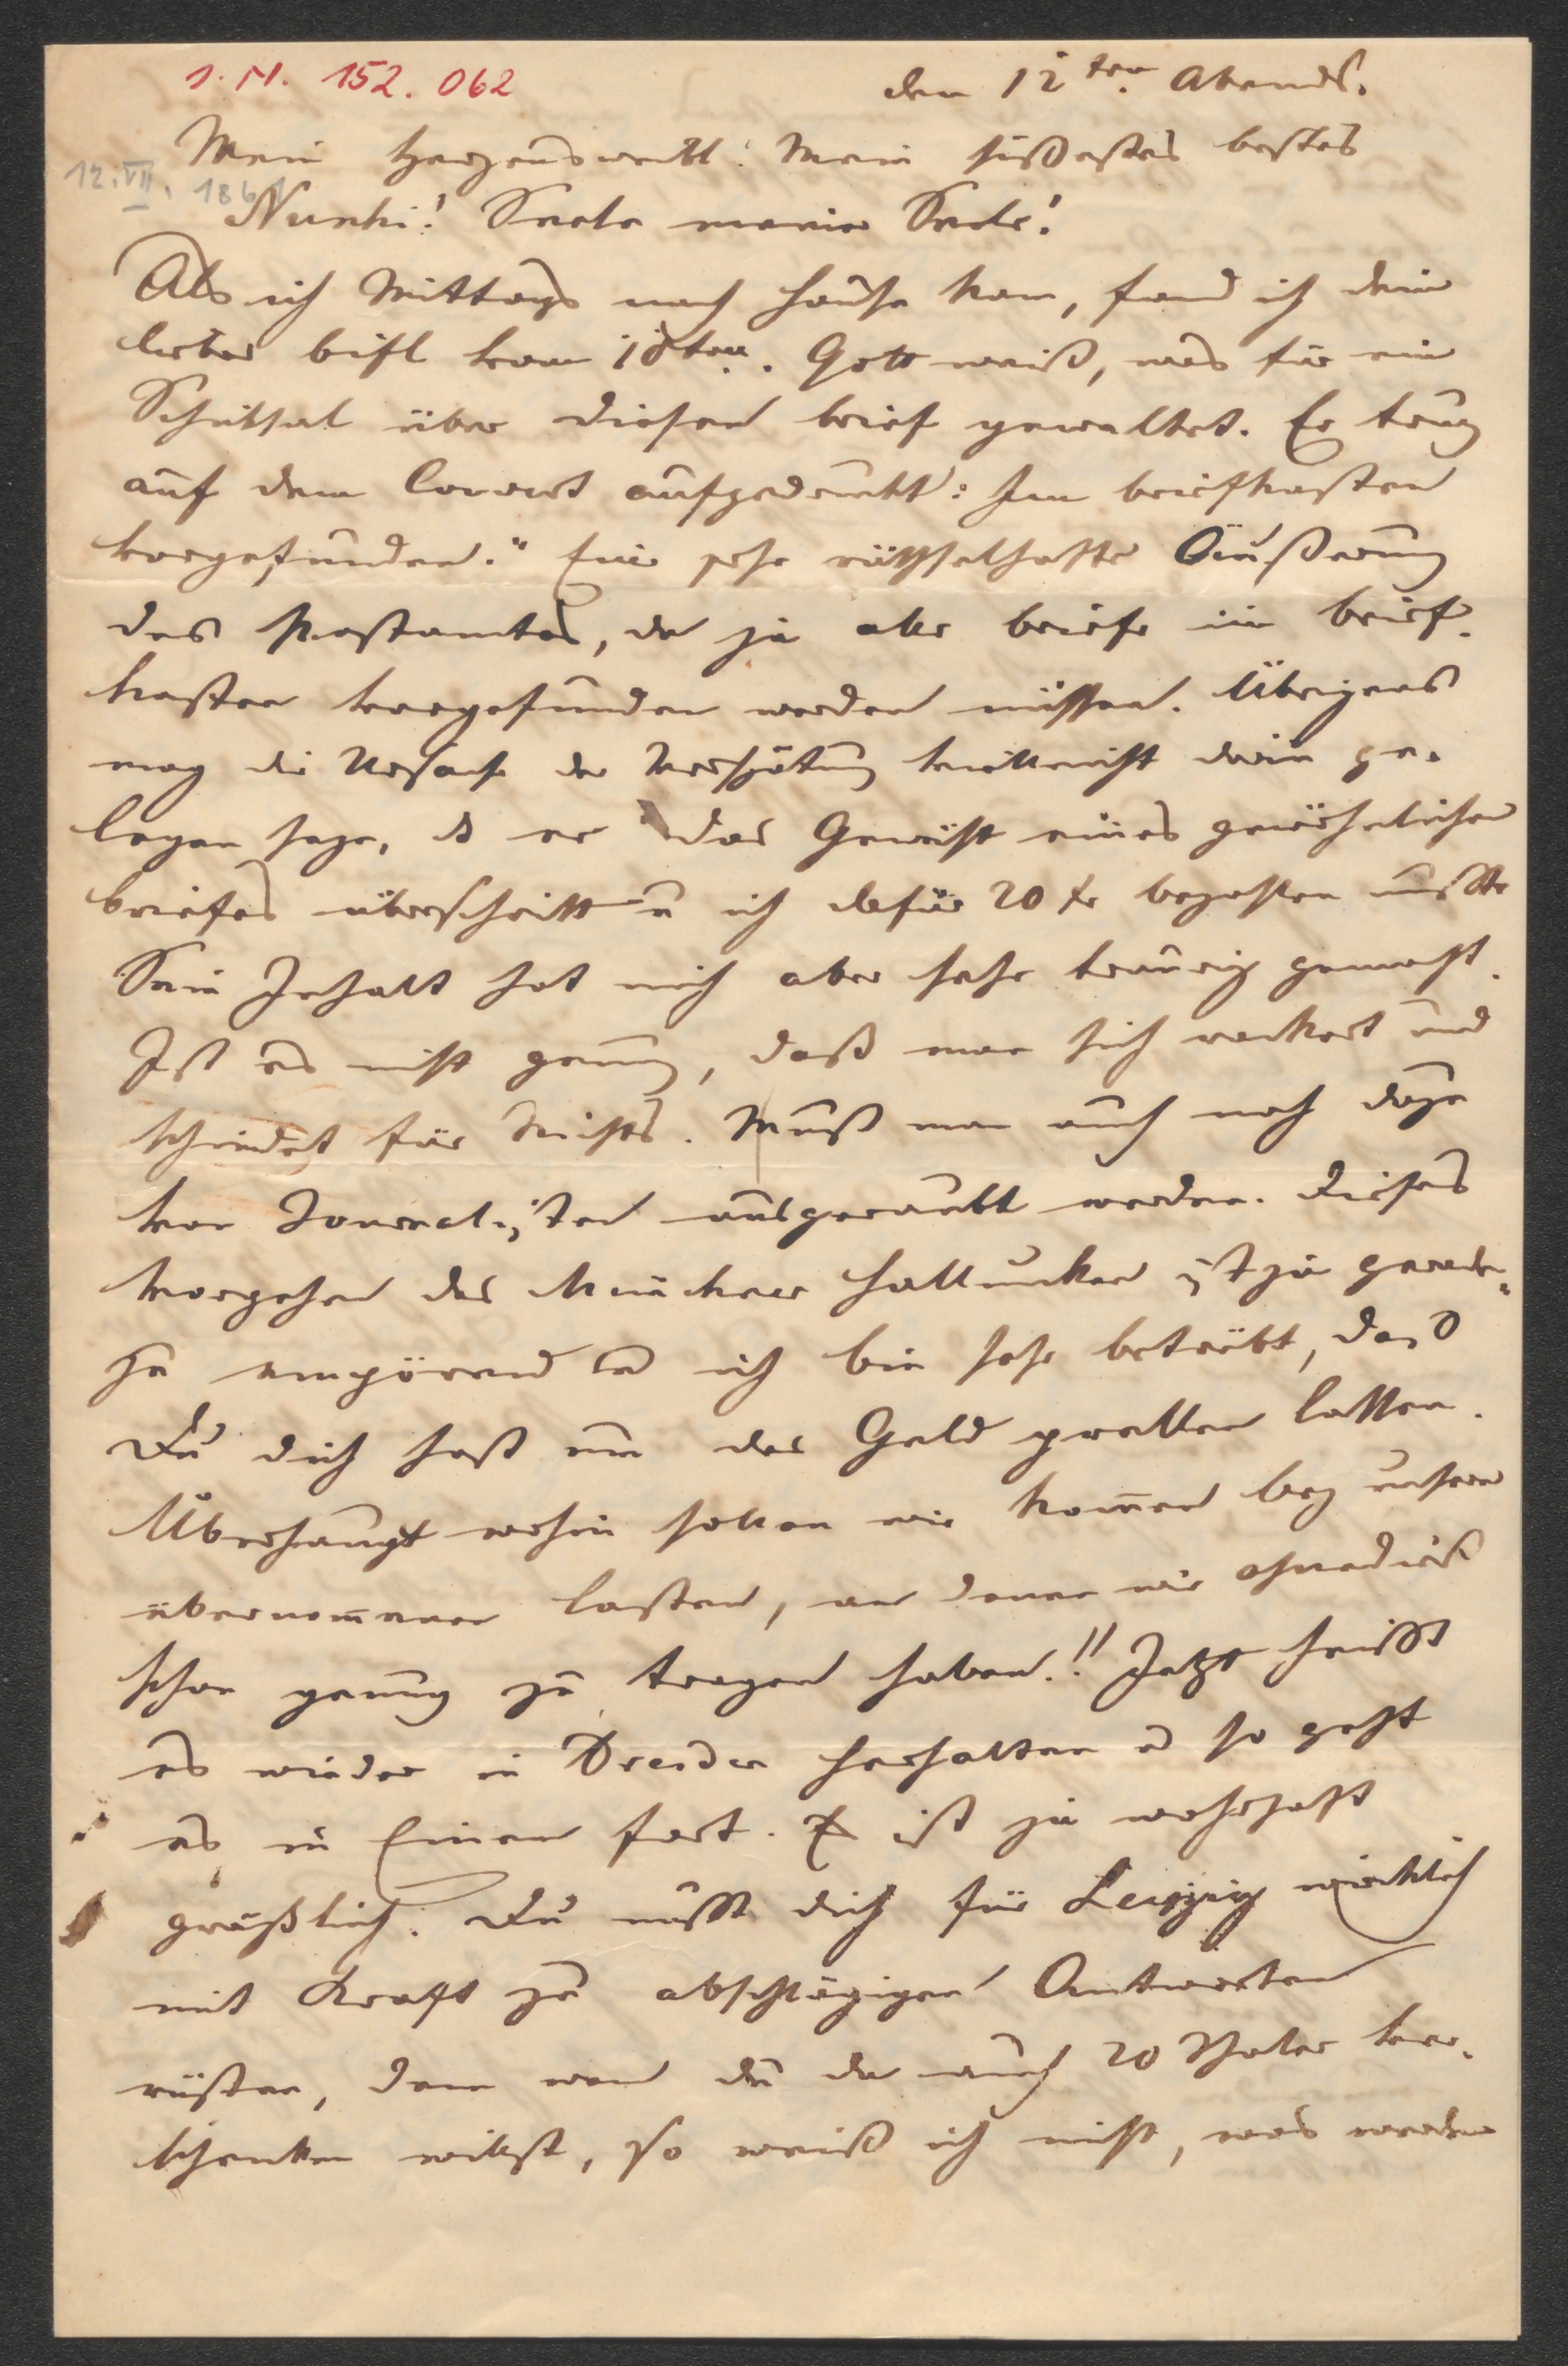 J. N. 152.062
den 12ten Abends.
12. VII. 186
Mein Herzensweibl! Mein süßestes bestes
Nunki! Seele meiner Seele!
Als ich Mittags nach Hause kam, fand ich dein
liebes briefl vom 10ten. Gott weiß, was für ein
Schicksal über diesen brief gewaltet. Er trug
auf dem Couvert aufgedruckt: Im briefkasten
vorgefunden." Eine sehr räthselhafte Äußerung
des Postamtes, da ja alle briefe im brief-
kasten vorgefunden werden müssen. Übrigens
mag die Ursache der Verspätung vielleicht darin ge-
legen seyn, daß er das Gewicht eines gewöhnlichen
briefes überschritt u ich dafür 20 kr bezahlen mußte
Sein Inhalt hat mich aber sehr traurig gemacht.
Ist es nicht genug, daß man sich rackert und
schindet für Nichts. Muß man auch noch dazu
von Journalisten ausgeraubt werden. Dieses
Vorgehen des Münchner Hallunken ist ja gerade-
zu empörend u ich bin sehr betrübt, daß
Du dich hast um das Geld prellen lassen.
Überhaupt wohin sollen wir kommen bey unseren
übernommenen Lasten, an denen wir ohnedieß
schon genug zu tragen haben!! Jetzt heißt
es wieder in Dresden herhalten u so geht
es in Einem fort. Es ist ja wahrhaft
gräßlich. Du mußt dich für Leipzig wirklich
mit Kraft zu abschlägigen Antworten
rüsten, denn wenn du da auch 20 Thaler ver-
schenken willst, so weiß ich nicht, was werden